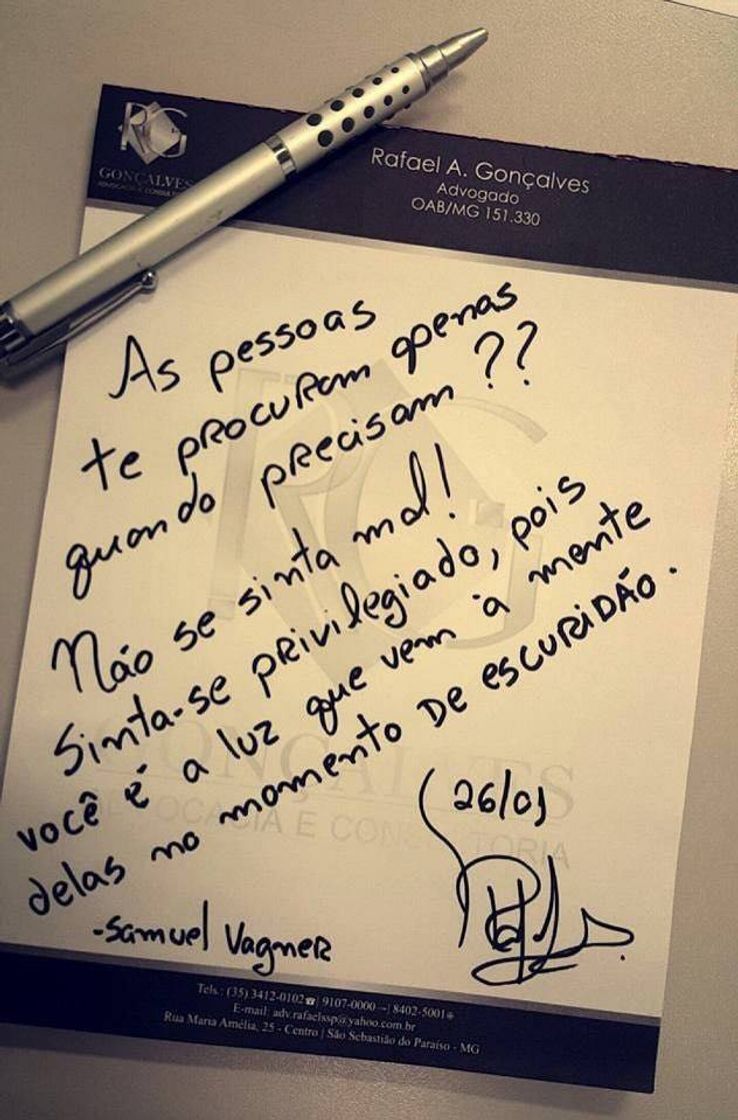 RG
GONÇALVES
Rafael A. Gonçalves
Advogado
OAB/MG 151.330
As pessoas
te procuram apenas
quando precisam??
Não se sinta mal!
Sinta-se privilegiado, pois
você é a luz que vem à mente
delas no momento de escuridão.
-Samuel Vagner
26/01
GONÇALVES
ADVOCACIA E CONSULTORIA
Tels.: (35) 3412-0102 | 9107-0000 | 8402-5001
E-mail: adv.rafaelssp@yahoo.com.br
Rua Maria Amélia, 25 - Centro | São Sebastião do Paraíso - MG